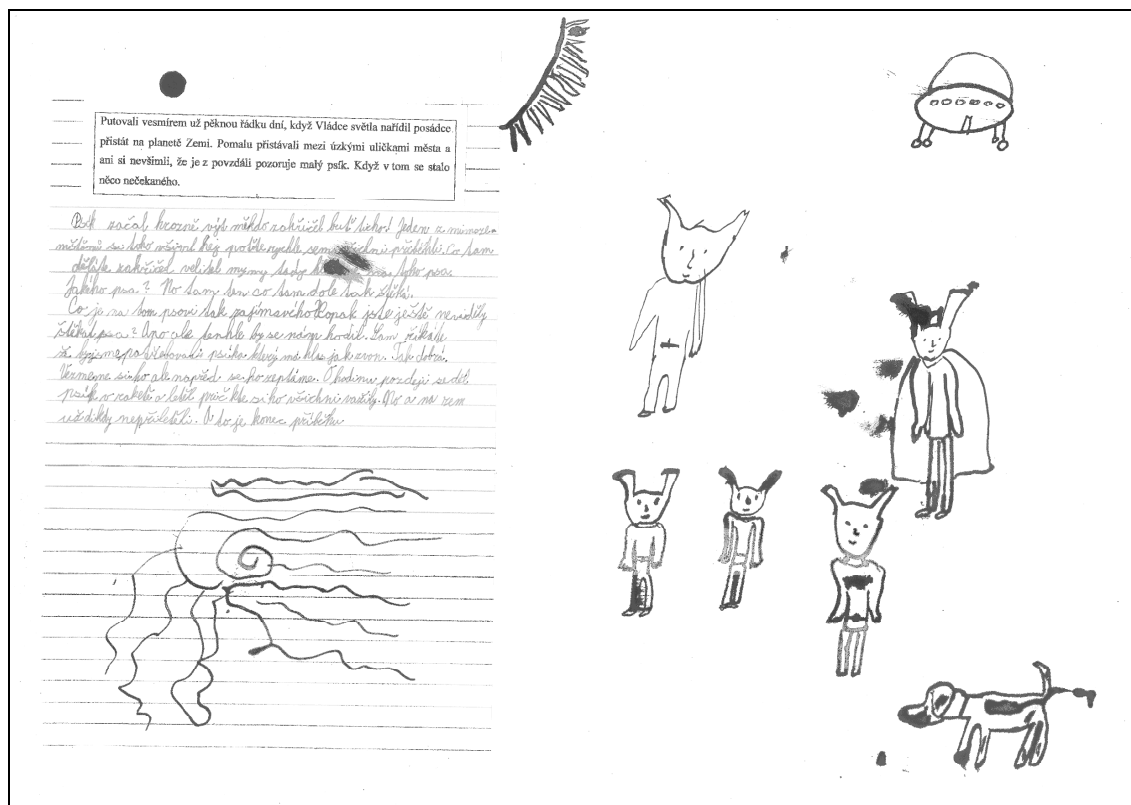 Putovali vesmírem už pěknou řádku dní, když Vládce světla nařídil posádce
přistát na planetě Zemi. Pomalu přistávali mezi úzkými uličkami města a
ani si nevšimli, že je z povzdálí pozoruje malý psík. Když v tom se stalo
něco nečekaného.
Psík začal hrozně výt někdo zakřičel buť ticho! Jeden z mimoze-
mšťanů si toho všiml hej poťte rychle sem všichni přiběhli. Co tam
děláte zakřičel velitel my tady toho psa.
Jakého psa? No tam ten co tam dole tak štěká.
Co je na tom psovi tak zajímavého? Copak jste ještě neviděly
štěkat psa? Ano ale tenhle by se nám hodil. Sám říkáte
že bysme potřebovali psíka který má hlas jak zvon. Tak dobrá.
Vezmeme si ho ale napřed se ho zeptáme. O hodinu pozdeji seděl
psík v raketě a letěl pryč kde si ho všichni vážily. No a na zem
už nikdy nepřiletěli. A to je konec příběhu